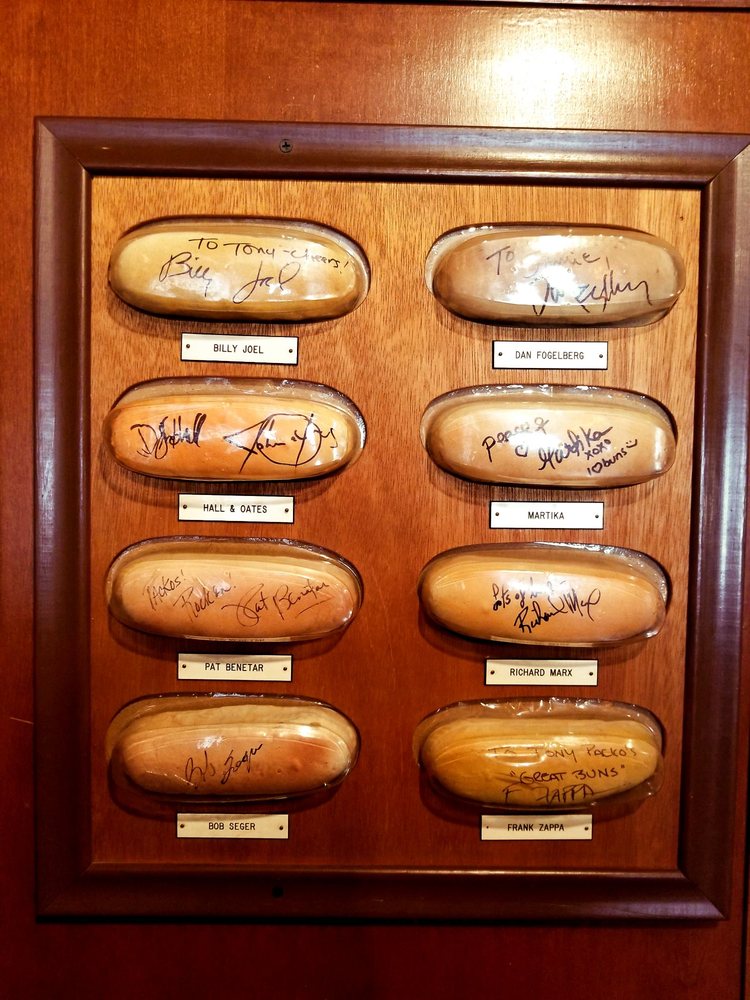 TO TONY-CHEERS!
Billy Joel
BILLY JOEL
TO
DAN FOGELBERG
HALL & OATES
Peace &
Martika
xoxo
10 buns
MARTIKA
PACKOS!
Rockin!
Pat Benetar
PAT BENETAR
Lots of
Richard Marx
RICHARD MARX
Bob Seger
BOB SEGER
TO TONY PACKO'S
"GREAT BUNS"
F. ZAPPA
FRANK ZAPPA